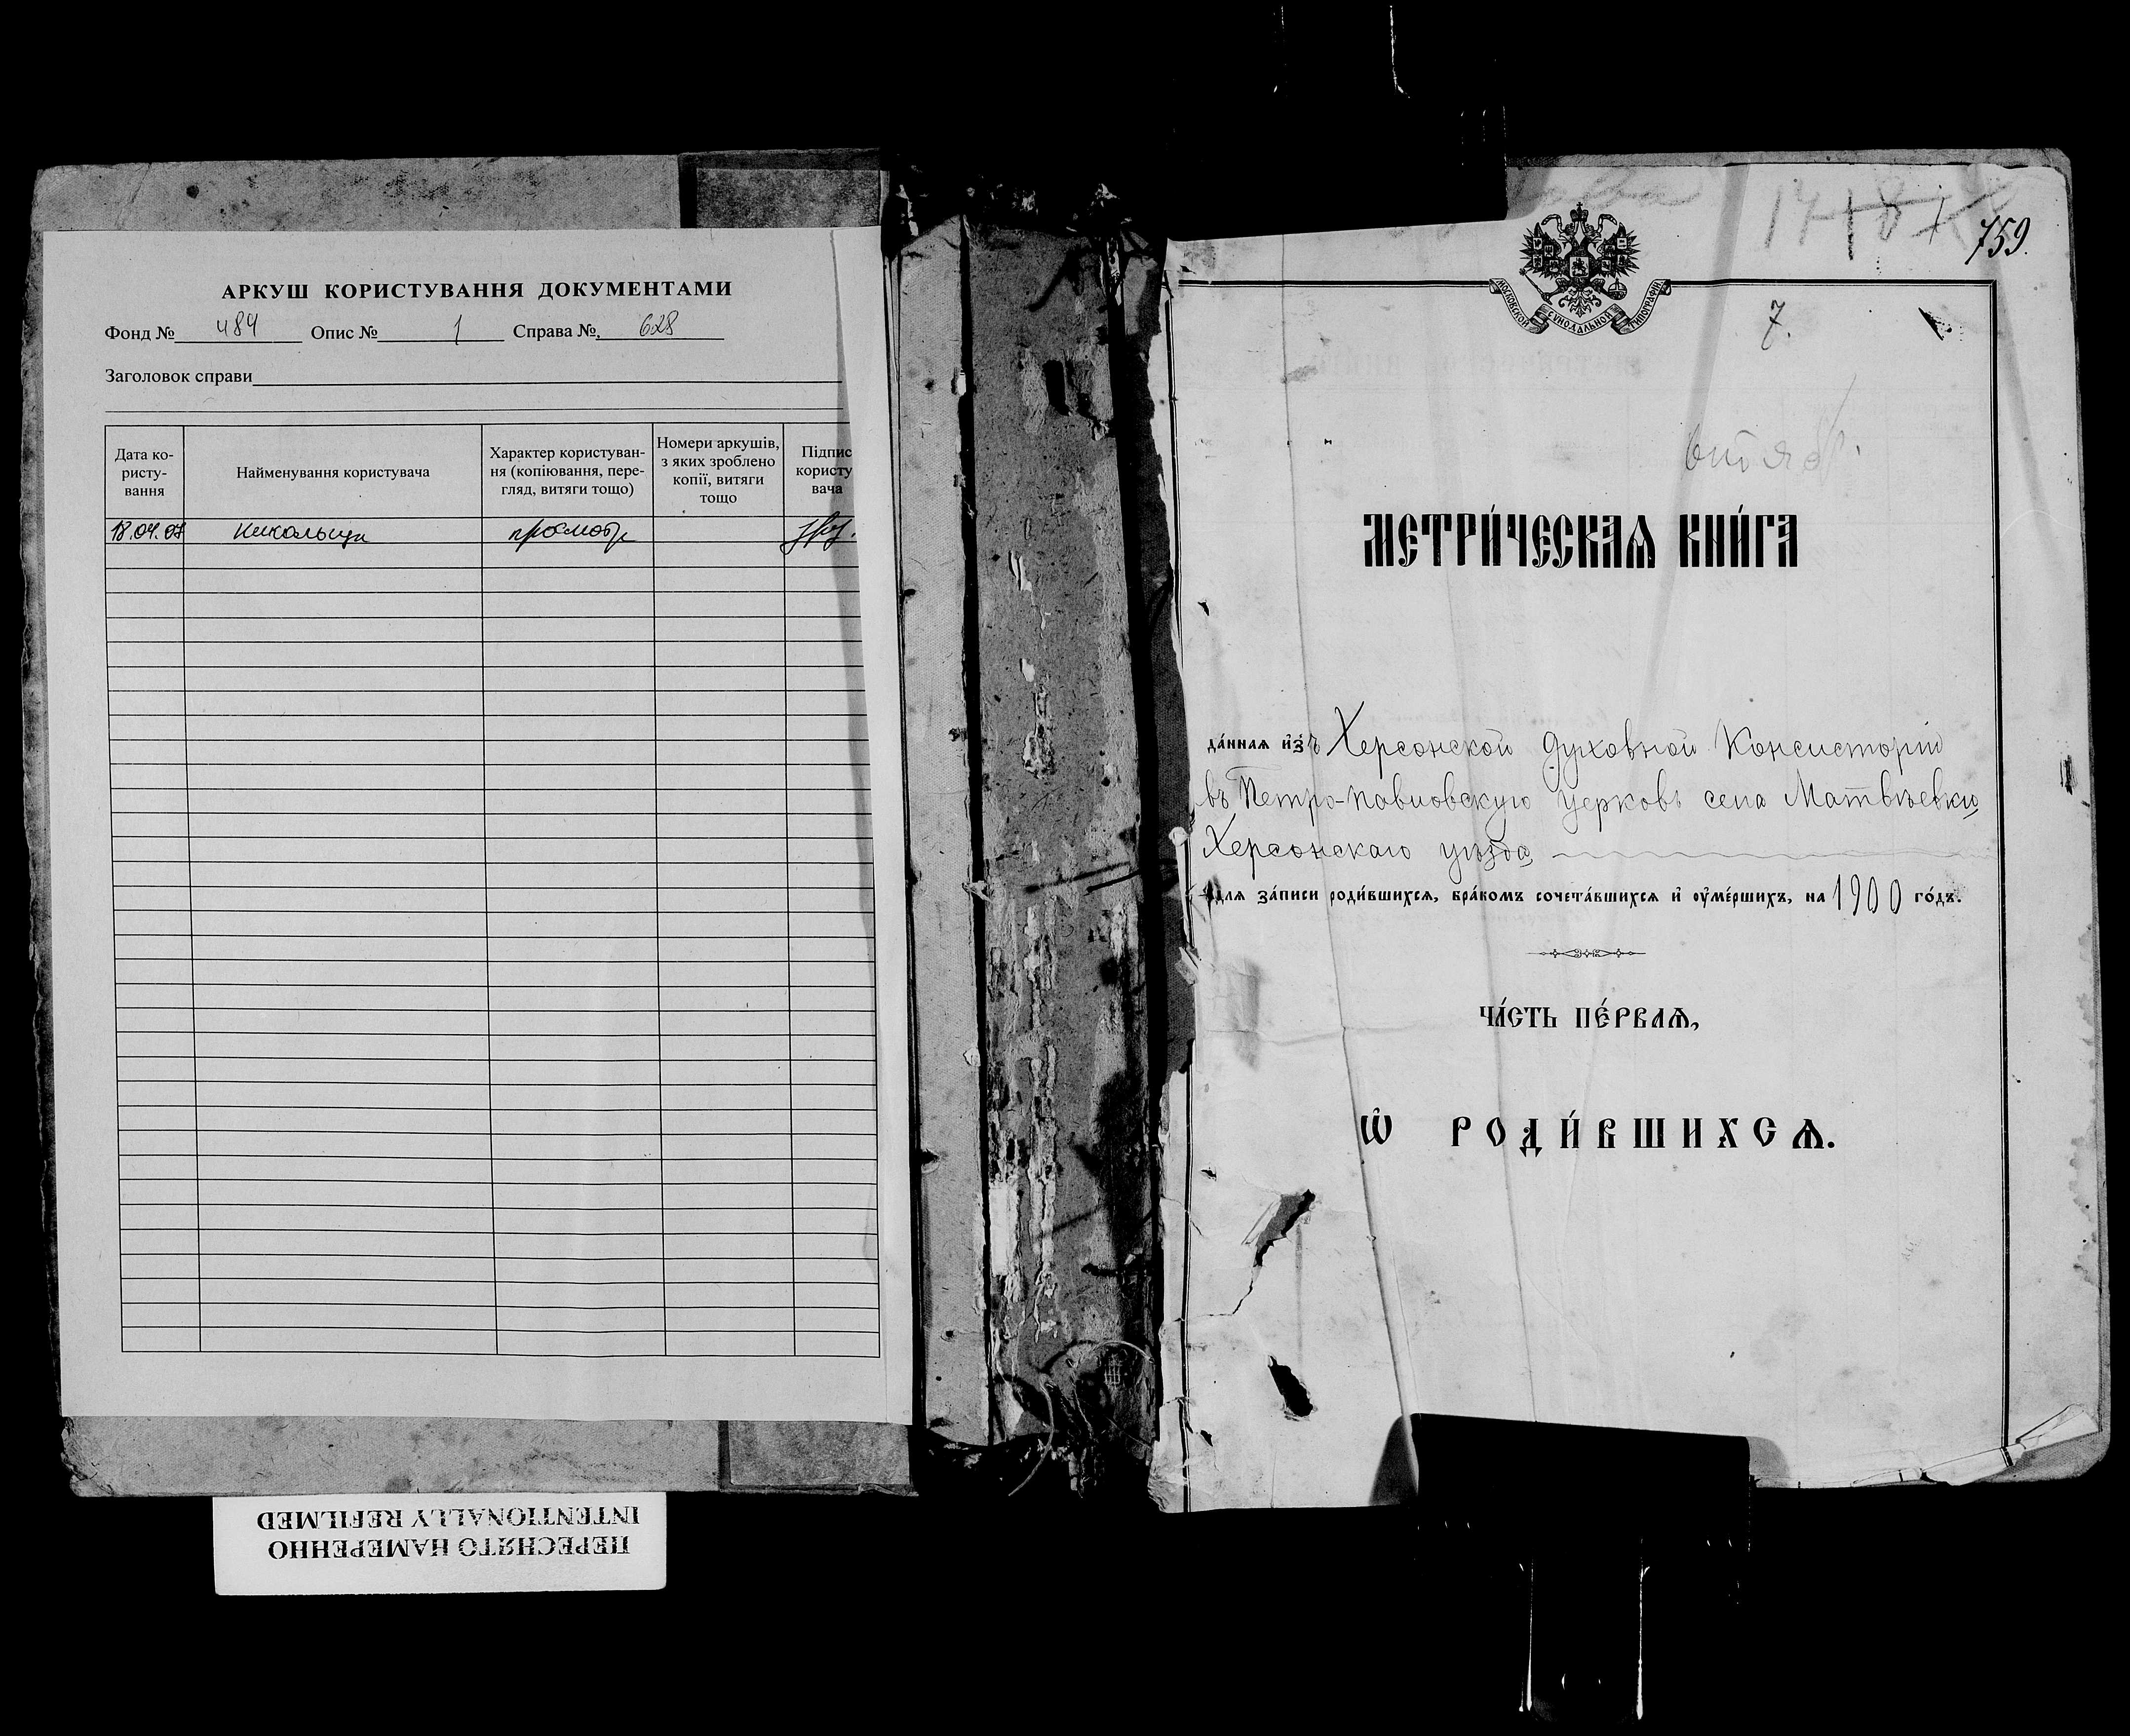 АРКУШ КОРИСТУВАННЯ ДОКУМЕНТАМИ
Фонд № 484 Опис № 1 Справа № 628
Заголовок справи
Дата ко-
ристу-
вання
Найменування користувача
Характер користуван-
ня (копіювання, пере-
гляд, витяги тощо)
Номери аркушів,
з яких зроблено
копії, витяги
тощо
Підпис
користу
вача
18.04.07 просмотр
ПЕРЕСНЯТО НАМЕРЕННО
INTENTIONALLY REFILMED
759.
МОСКОВСКОЙ СѴНОДАЛЬНОЙ ТИПОГРАФІИ
7.
МЕТРИ́ЧЕСКАѦ КНИ́ГА
да́нная и҆́зъ Херсонской Духовной Консисторіи
въ Петро-Павловскую церковь села Матвѣевки
Херсонскаго уѣзда
для за́писи роди́вшихсѧ, бра́комъ сочета́вшихсѧ и҆ оу҆ме́ршихъ, на 1900 го́дъ.
ЧА́СТЬ ПЕ́РВАѦ,
Ѡ҆ РОДИ́ВШИХСѦ.